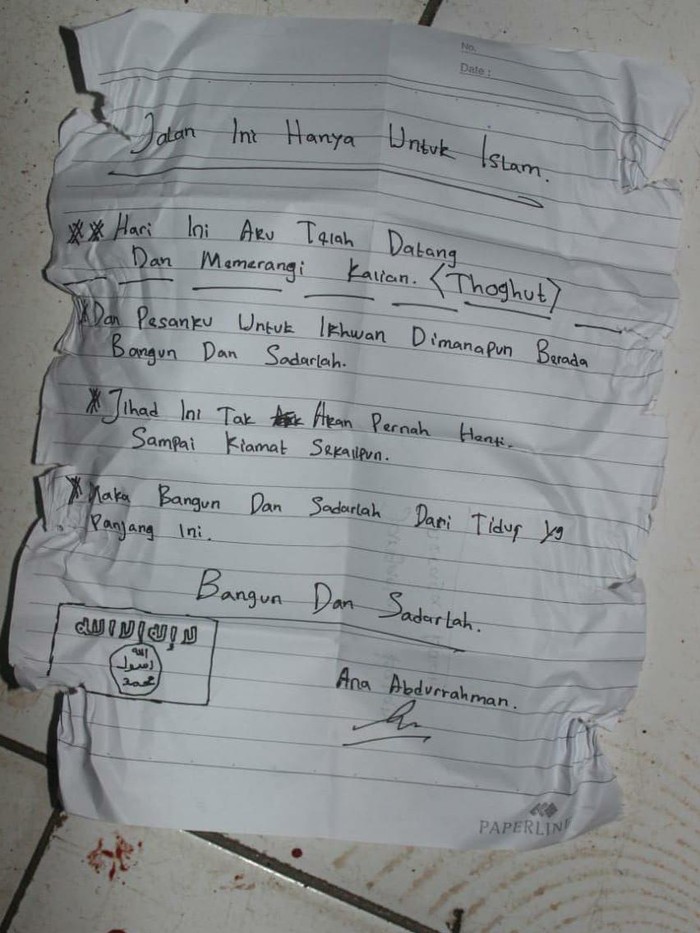 No.
Date :
Jalan Ini Hanya Untuk Islam.
** Hari Ini Aku Telah Datang
Dan Memerangi Kalian. <Thoghut>
* Dan Pesanku Untuk Ikhwan Dimanapun Berada
Bangun Dan Sadarlah.
* Jihad Ini Tak Akan Pernah Henti.
Sampai Kiamat Sekalipun.
* Maka Bangun Dan Sadarlah Dari Tidur yg
Panjang Ini.
Bangun Dan Sadarlah.
لا إله إلا الله
الله
رسول
محمد
Ana Abdurrahman.
PAPERLINE